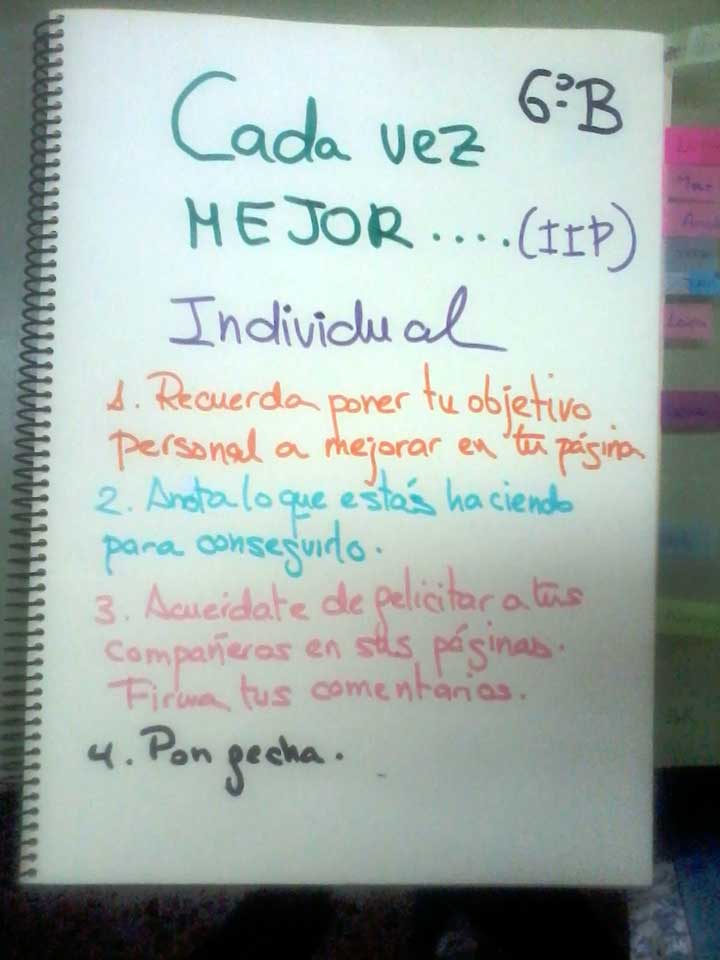 6º B
Cada vez
MEJOR....(IIP)
Individual
1. Recuerda poner tu objetivo
personal a mejorar en tu página
2. Anota lo que estás haciendo
para conseguirlo.
3. Acuérdate de felicitar a tus
compañeros en sus páginas.
Firma tus comentarios.
4. Pon fecha.